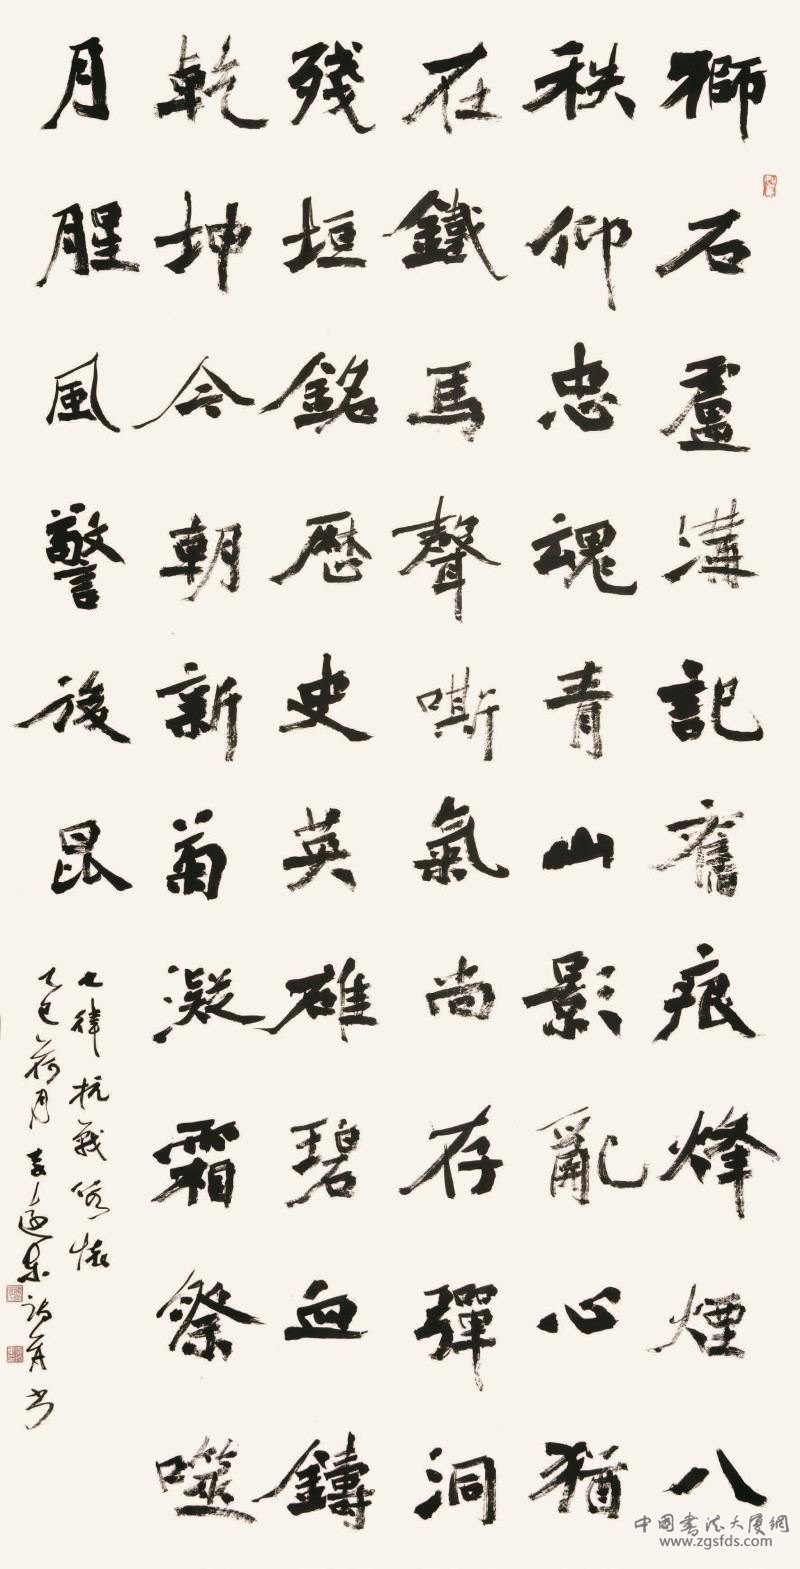 獅石盧溝記舊痕烽煙八
秩仰忠魂青山影亂心猶
在鐵馬聲嘶氣尚存彈洞
殘垣銘歷史英雄碧血鑄
乾坤今朝新菊凝霜祭噬
月腥風警後昆
七律抗戰感懷
乙巳荷月
中國書法大厦網
www.zgsfds.com